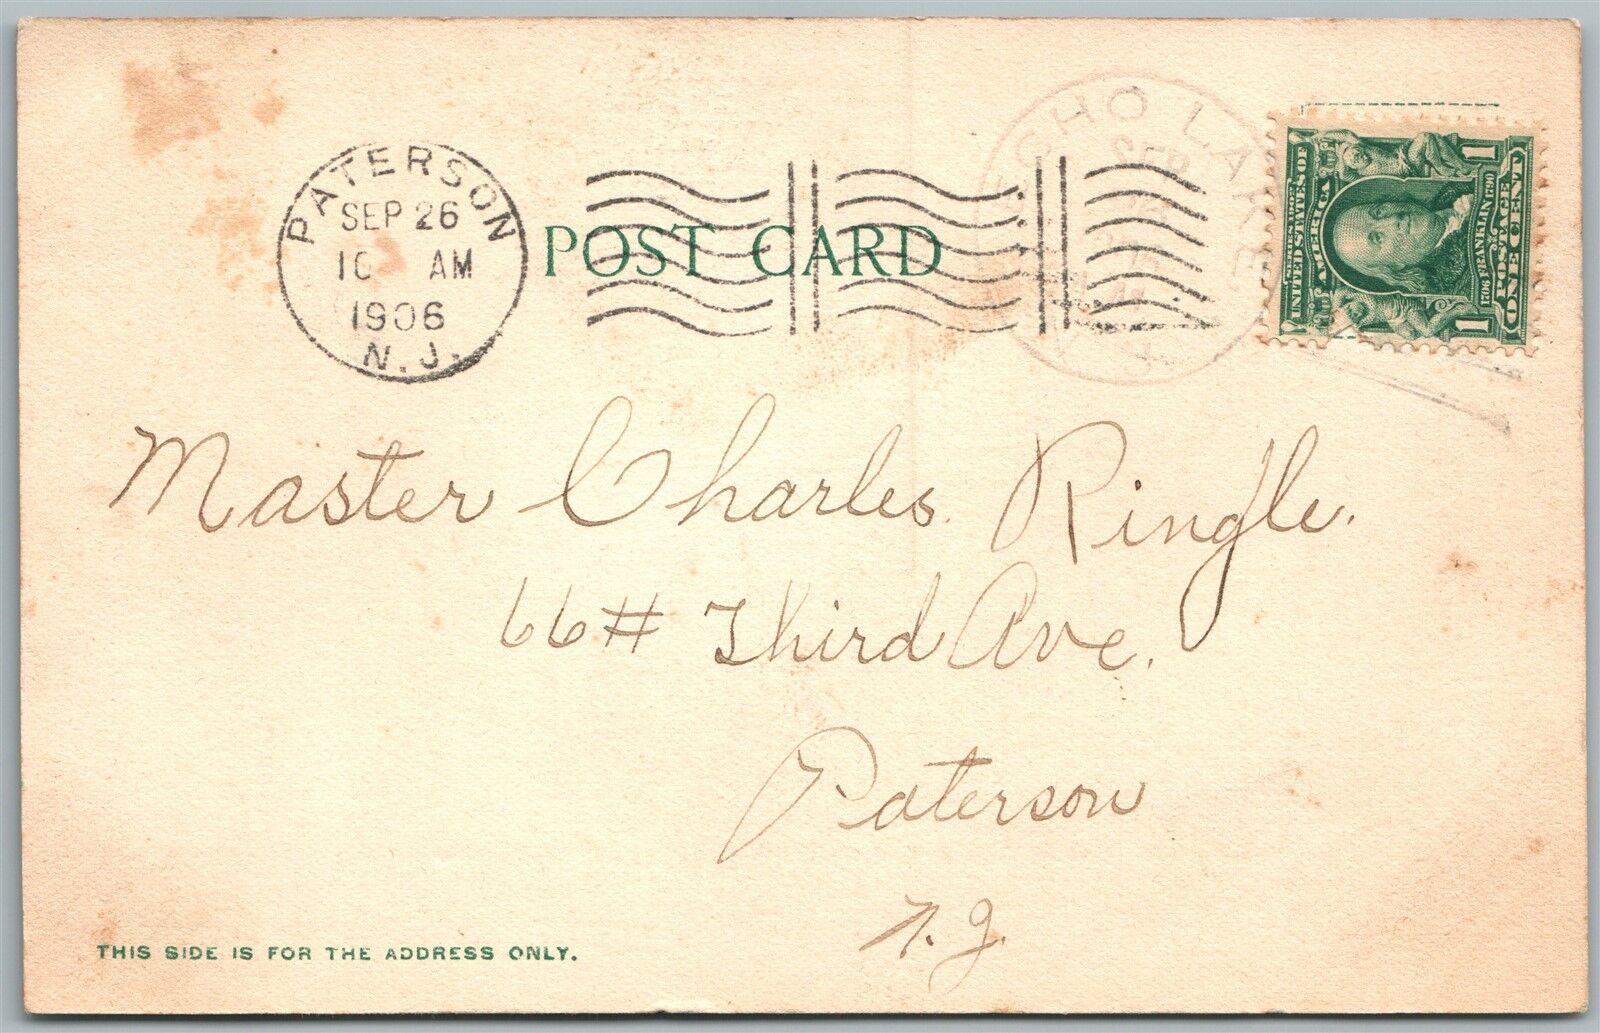 PATERSON
SEP 26
10 AM
1906
N.J.
POST CARD
ECHO LAKE
SEP
SERIES 1902
UNITED STATES OF
AMERICA
1706 FRANKLIN 1790
POSTAGE
ONE CENT
1
1
Master Charles Ringle.
66# Third Ave.
Paterson
N.J.
THIS SIDE IS FOR THE ADDRESS ONLY.